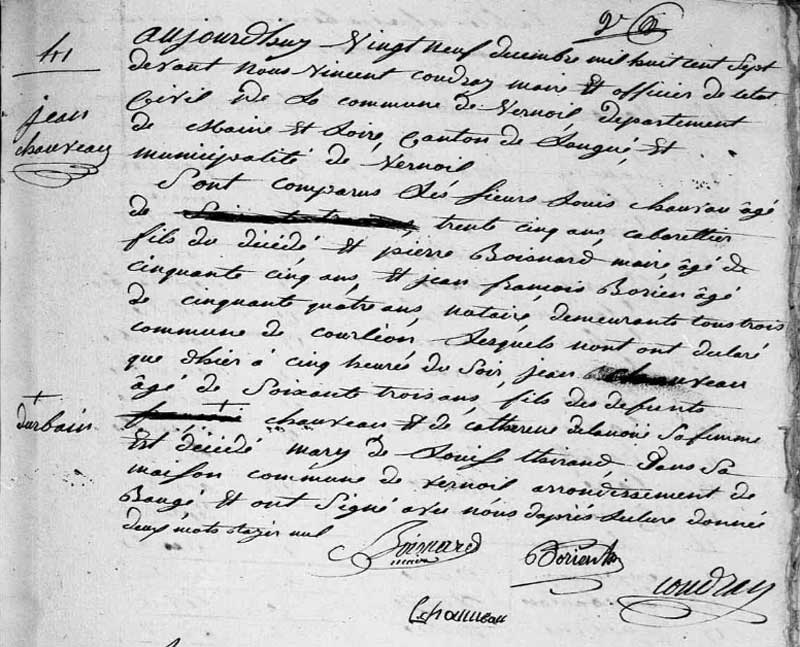 41
jean
chauveau
aujourdhuy vingt neuf decembre mil huit cent sept
devant nous vincent coudray maire et officier de letat
Civil de la commune de vernoil, departement
de Maine et Loire, Canton de Longué, et
municipalité de vernoil
Sont comparus les sieurs Louis chauvau âgé
de trente cinq ans, cabarettier
fils du décédé et pierre Boisnard maire, âgé de
cinquante cinq ans, et jean françois Borien âgé
de cinquante quatre ans, notaire, demeurants tous trois
commune de courléon, Lesquels nont ont declaré
que dhier à cinq heures du Soir, jean chauveau
âgé de Soixante trois ans, fils des defunts
+
durbain
chauveau et de catherine delanoue Sa femme
Est décédé mary de Louise dans Sa
maison commune de vernoil arrondissement de
Baugé et ont Signé avec nous daprés Lecture donnée
deux mots rayer nul
Boisnard
maire
Borien
coudray
L chauveau